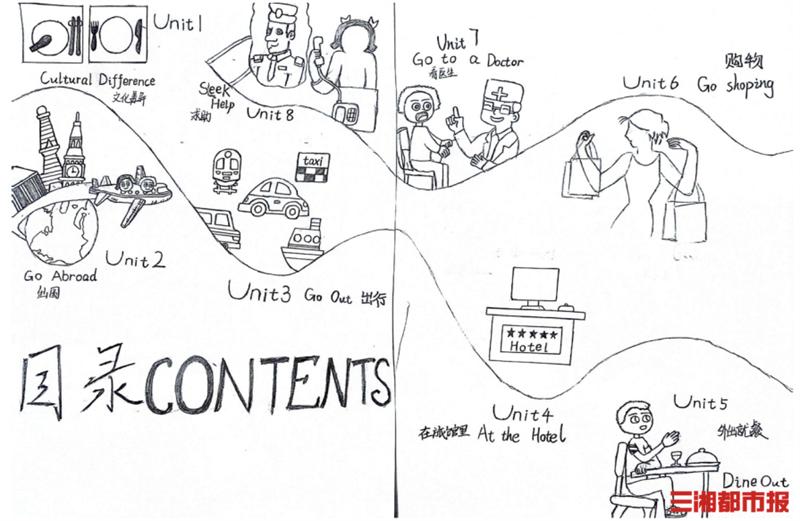 Unit1
Cultural Difference
文化差异
Unit2
Go Abroad
出国
taxi
Unit3 Go Out 出行
Unit4
在旅馆里 At the Hotel
★★★★★
Hotel
Unit5
外出就餐
Dine Out
购物
Unit6 Go shoping
Unit7
Go to a Doctor
看医生
Sleek
Help
求助
Unit8
目录CONTENTS
三湘都市报